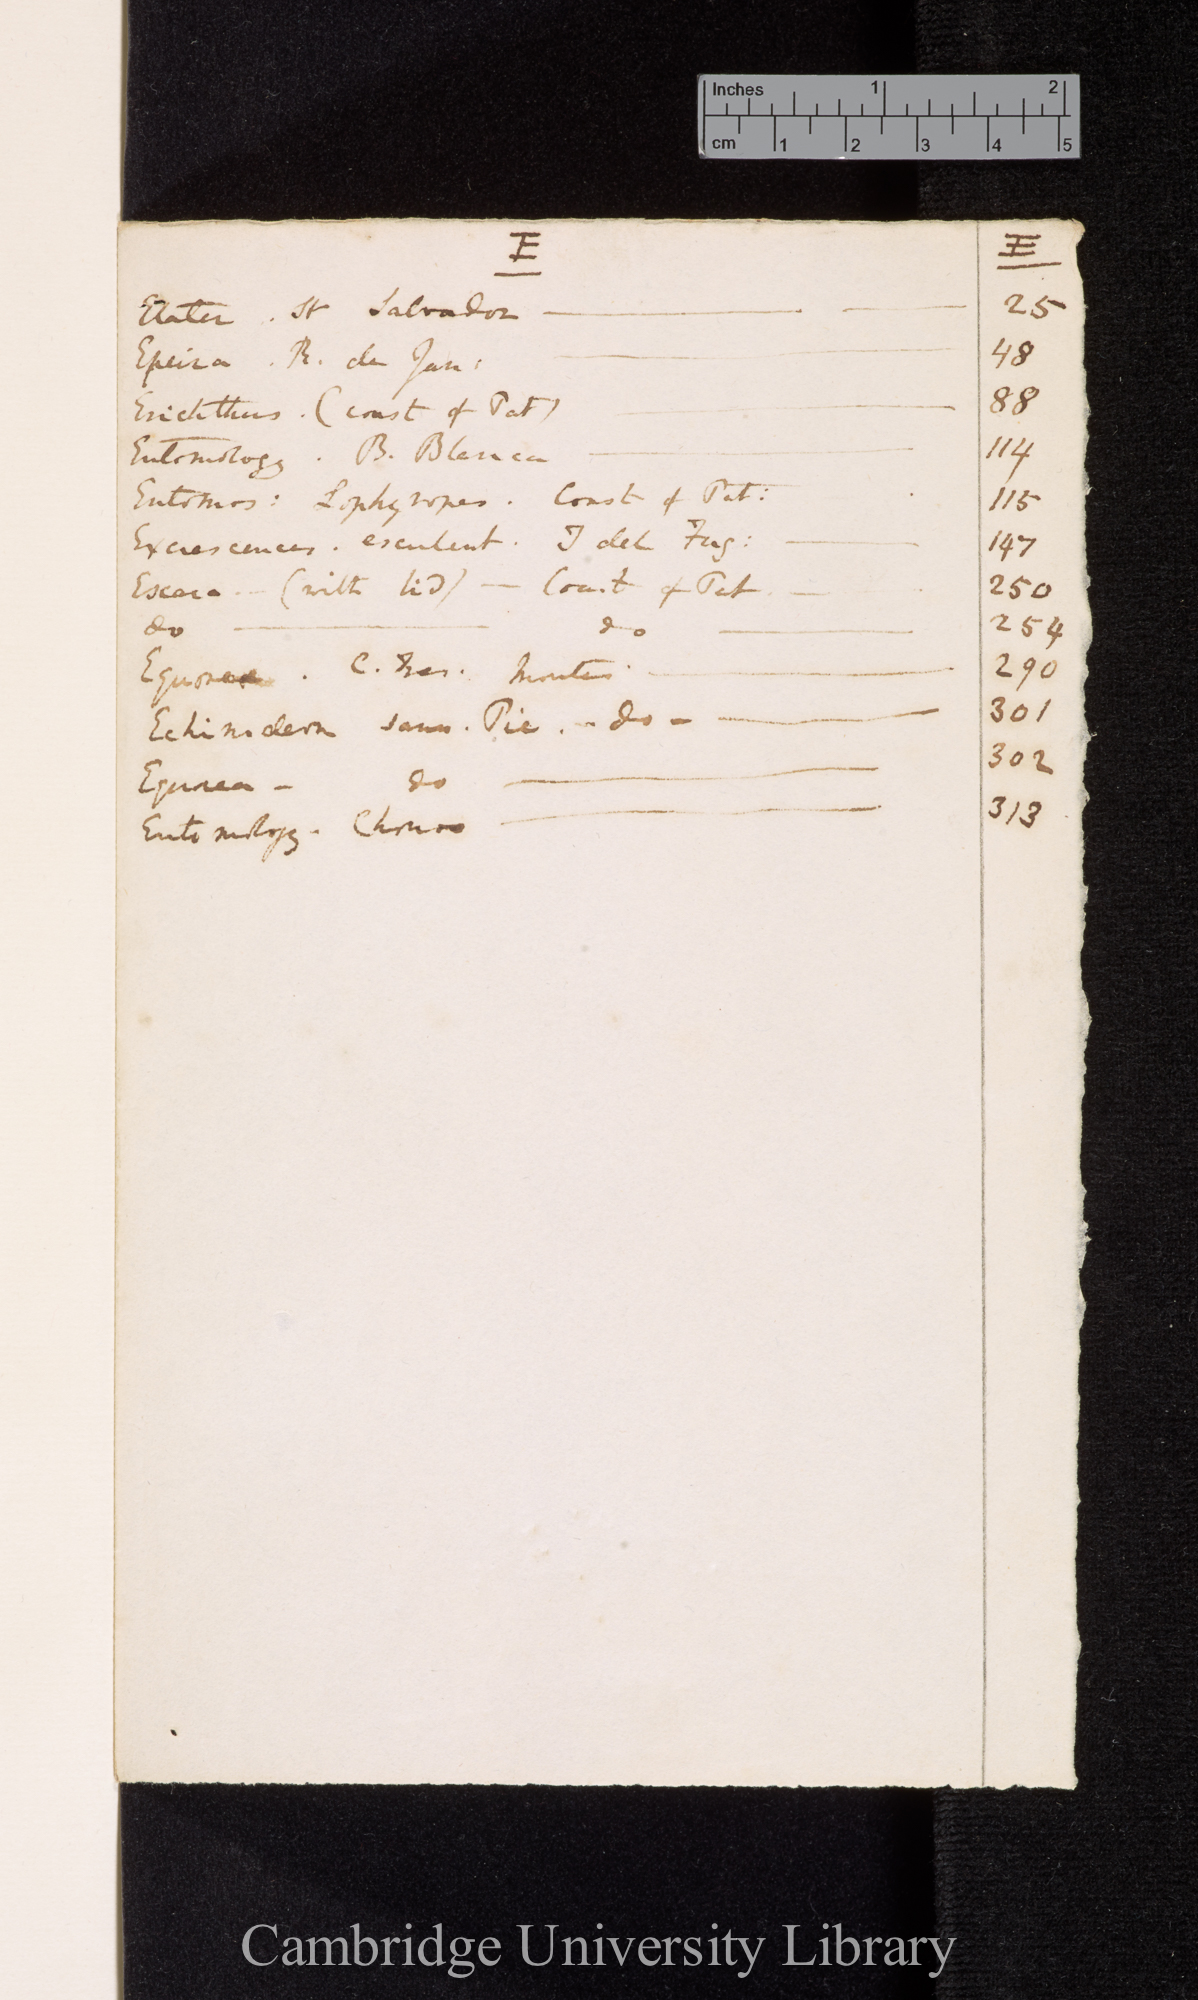 Inches 1 2
cm 1 2 3 4 5
E E
Elater . St Salvador 25
Epeira . R. de Jan: 48
Erichthus . (coast of Pat) 88
Entomology . B. Blanca 114
Entomos: Lophyropes . Coast of Pat: 115
Excrescences . esculent . T del Fug: 147
Escara — (with lid) — Coast of Pat. — 250
do do 254
C. Tres. Montes 290
Echinoderm sans. Pie . - do - 301
Equorea - do 302
Entomology . Chonos 313
Cambridge University Library